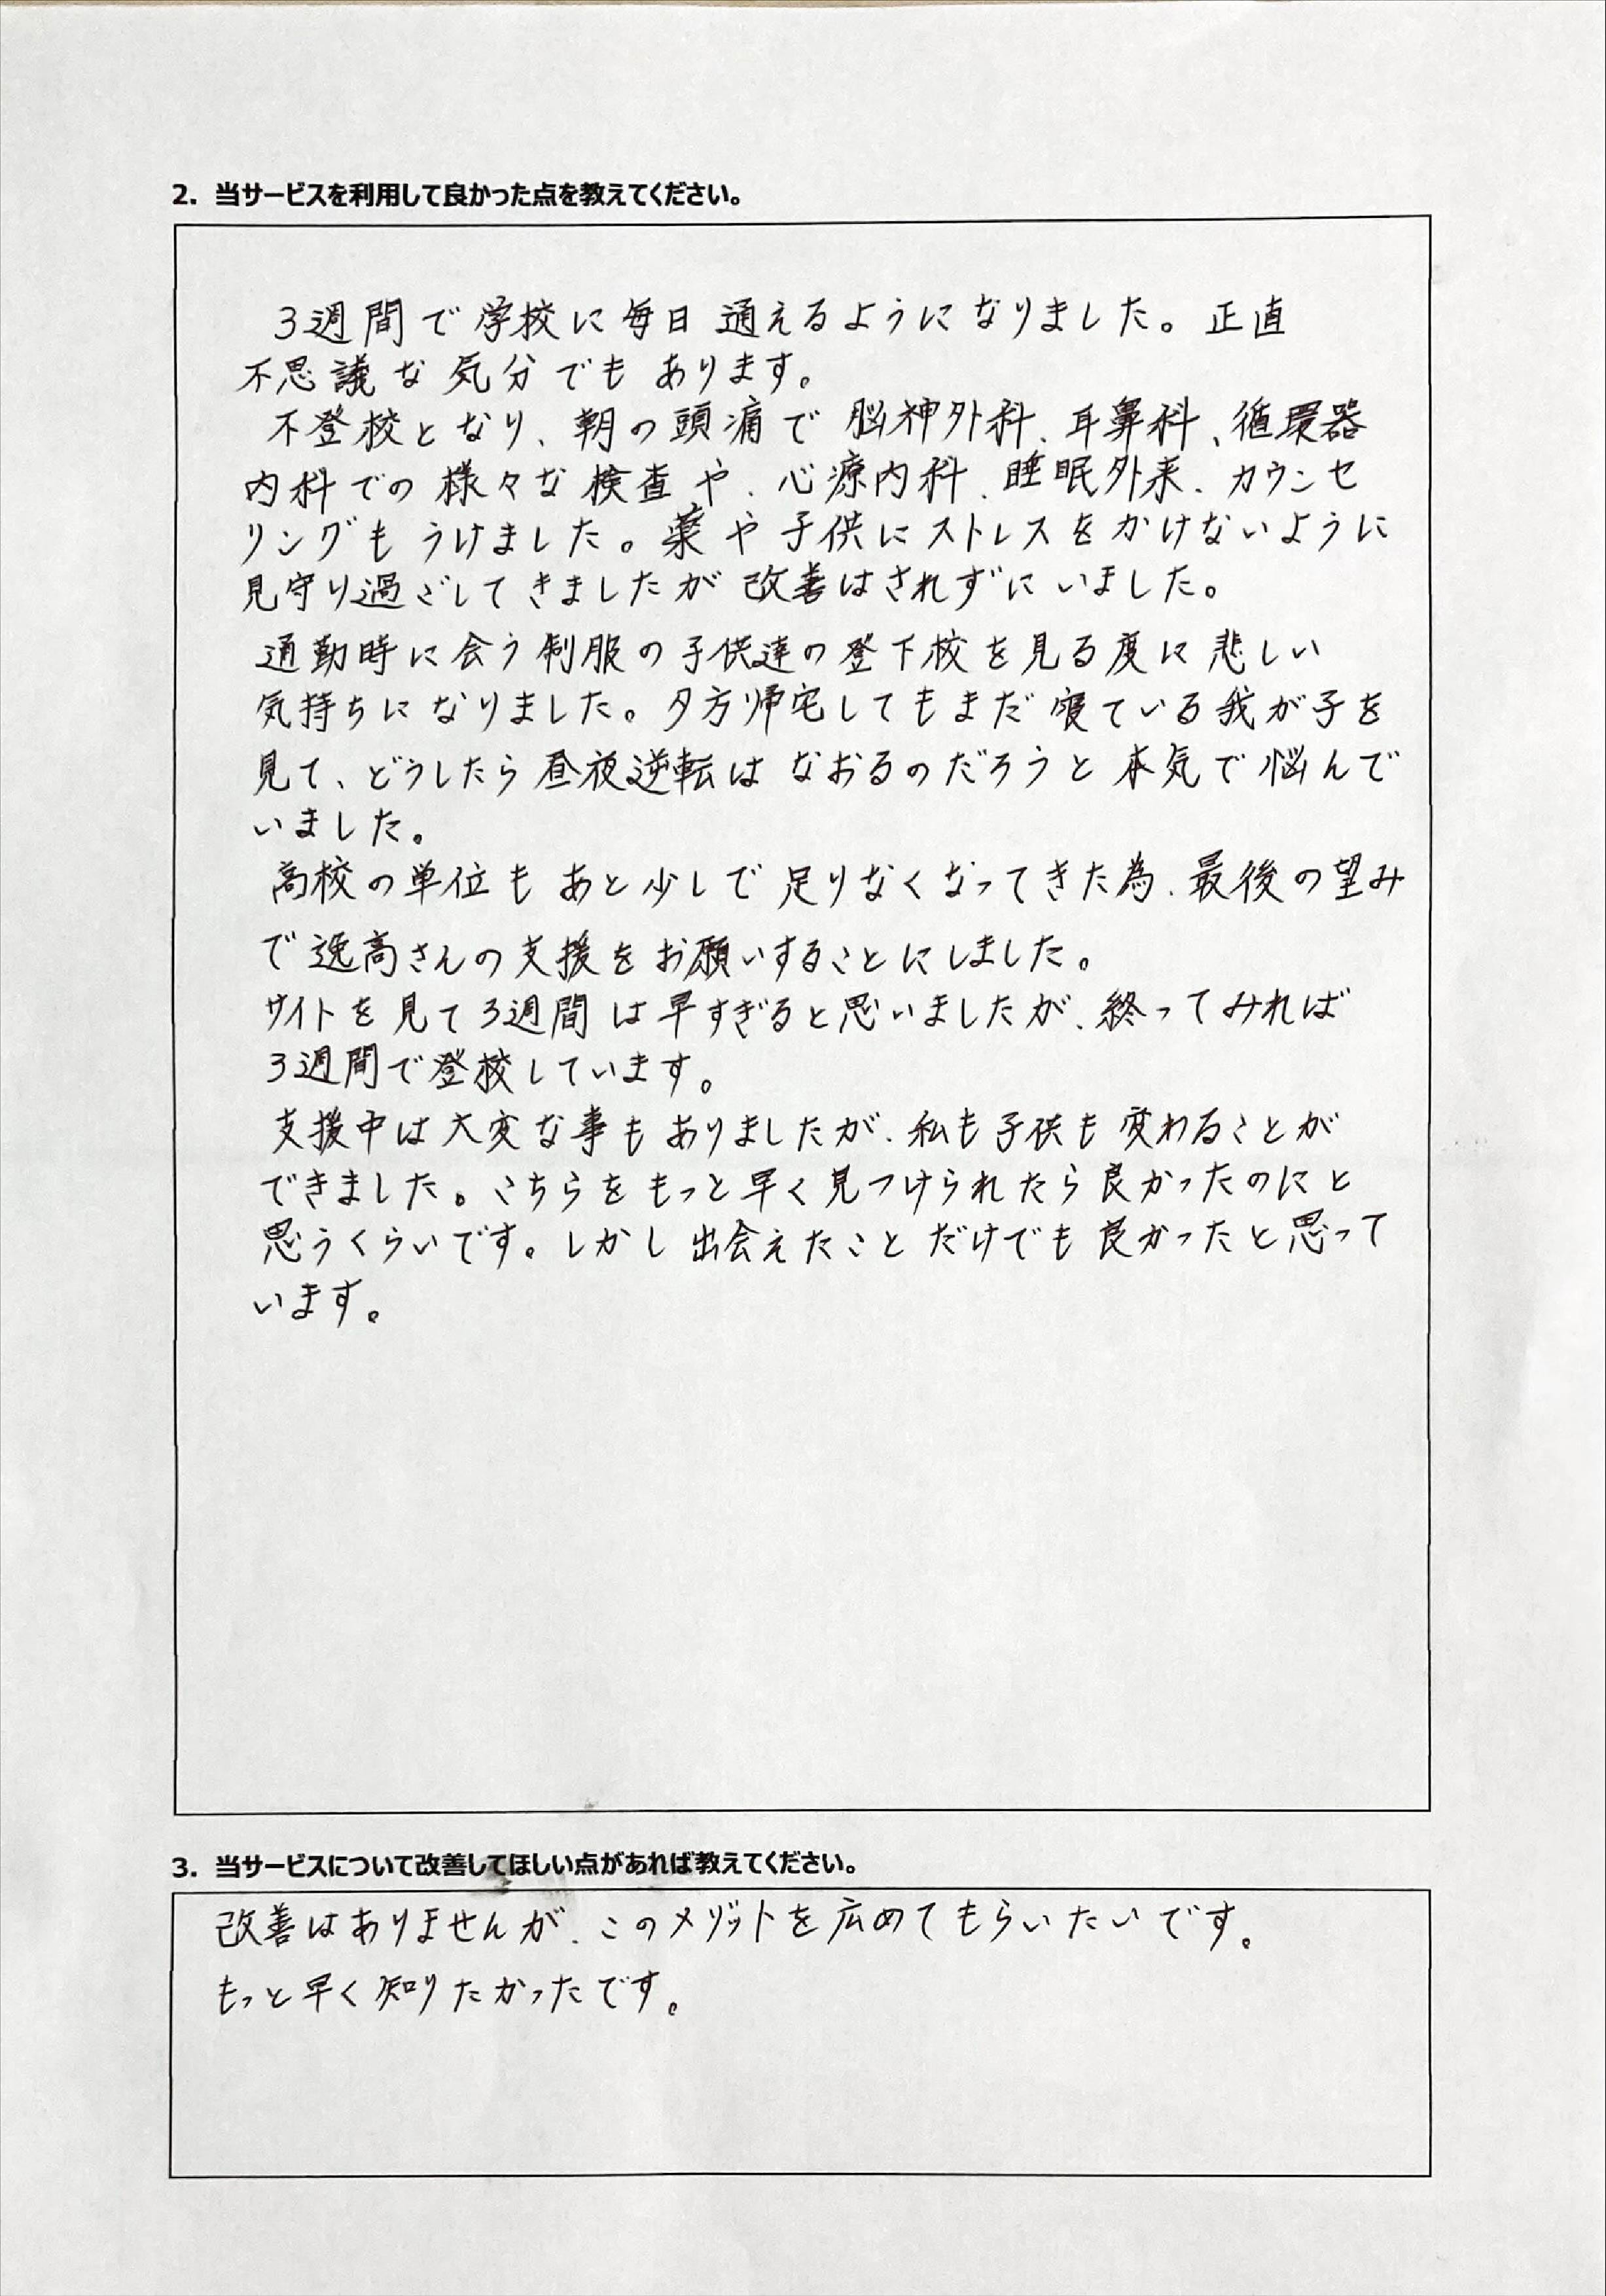 2. 当サービスを利用して良かった点を教えてください。
3週間で学校に毎日通えるようになりました。正直
不思議な気分でもあります。
不登校となり、朝の頭痛で脳神外科、耳鼻科、循環器
内科での様々な検査や、心療内科、睡眠外来、カウンセ
リングもうけました。薬や子供にストレスをかけないように
見守り過ごしてきましたが改善はされずにいました。
通勤時に会う制服の子供達の登下校を見る度に悲しい
気持ちになりました。夕方帰宅してもまだ寝ている我が子を
見て、どうしたら昼夜逆転はなおるのだろうと本気で悩んで
いました。
高校の単位もあと少しで足りなくなってきた為、最後の望み
で逸高さんの支援をお願いすることにしました。
サイトを見て3週間は早すぎると思いましたが、終ってみれば
3週間で登校しています。
支援中は大変な事もありましたが、私も子供も変わることが
できました。こちらをもっと早く見つけられたら良かったのにと
思うくらいです。しかし出会えたことだけでも良かったと思って
います。
3. 当サービスについて改善してほしい点があれば教えてください。
改善はありませんが、このメソッドを広めてもらいたいです。
もっと早く知りたかったです。